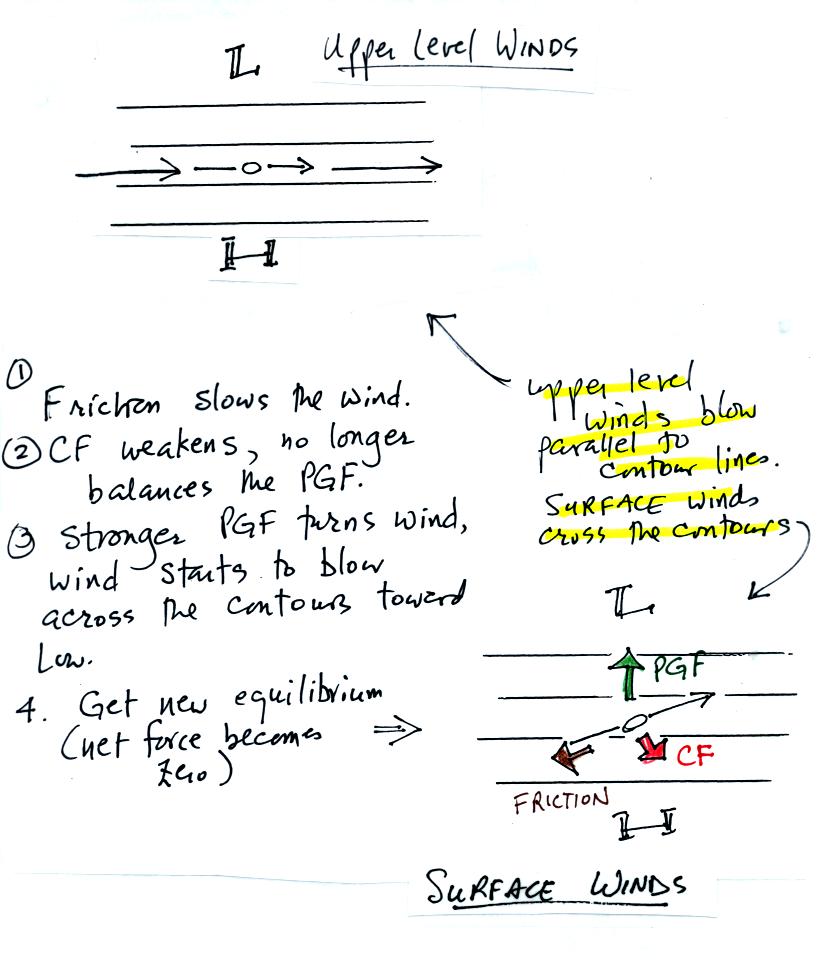 L
Upper Level WINDS
H
①
Friction slows the wind.
② CF weakens, no longer
balances the PGF.
③ Stronger PGF turns wind,
wind starts to blow
across the contours toward
Low.
4. Get new equilibrium
(net force becomes
zero)
upper level
winds blow
parallel to
contour lines.
SURFACE winds
cross the contours
L
PGF
CF
FRICTION
H
SURFACE WINDS